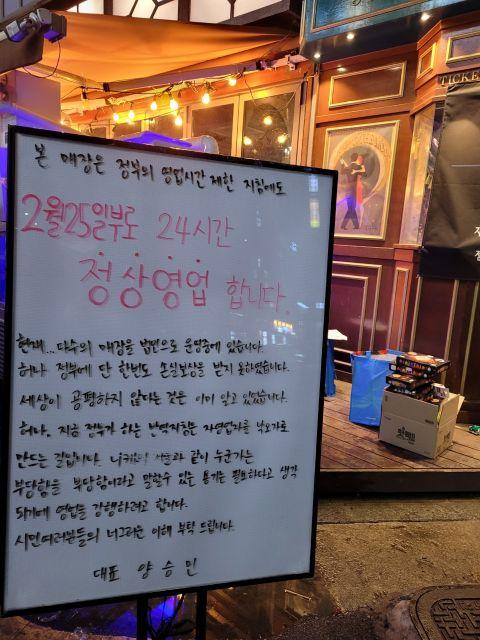 본 매장은 정부의 영업시간 제한 지침에도
2월25일부로 24시간
정상영업 합니다.
현재...다수의 매장을 법인으로 운영중에 있습니다.
허나 정부에 단 한번도 손실보상을 받지 못하였습니다.
세상이 공평하지 않다는 것은 이미 알고 있었습니다.
허나. 지금 정부가 하는 방역지침은 자영업자를 낙오자로
만드는 길입니다. 같이 누군가는
부당함을 부당함이라고 말할수 있는 용기는 필요하다고 생각
되기에 영업을 강행하려고 합니다.
시민여러분들의 너그러운 이해 부탁 드립니다.
대표 양승민
TICKE